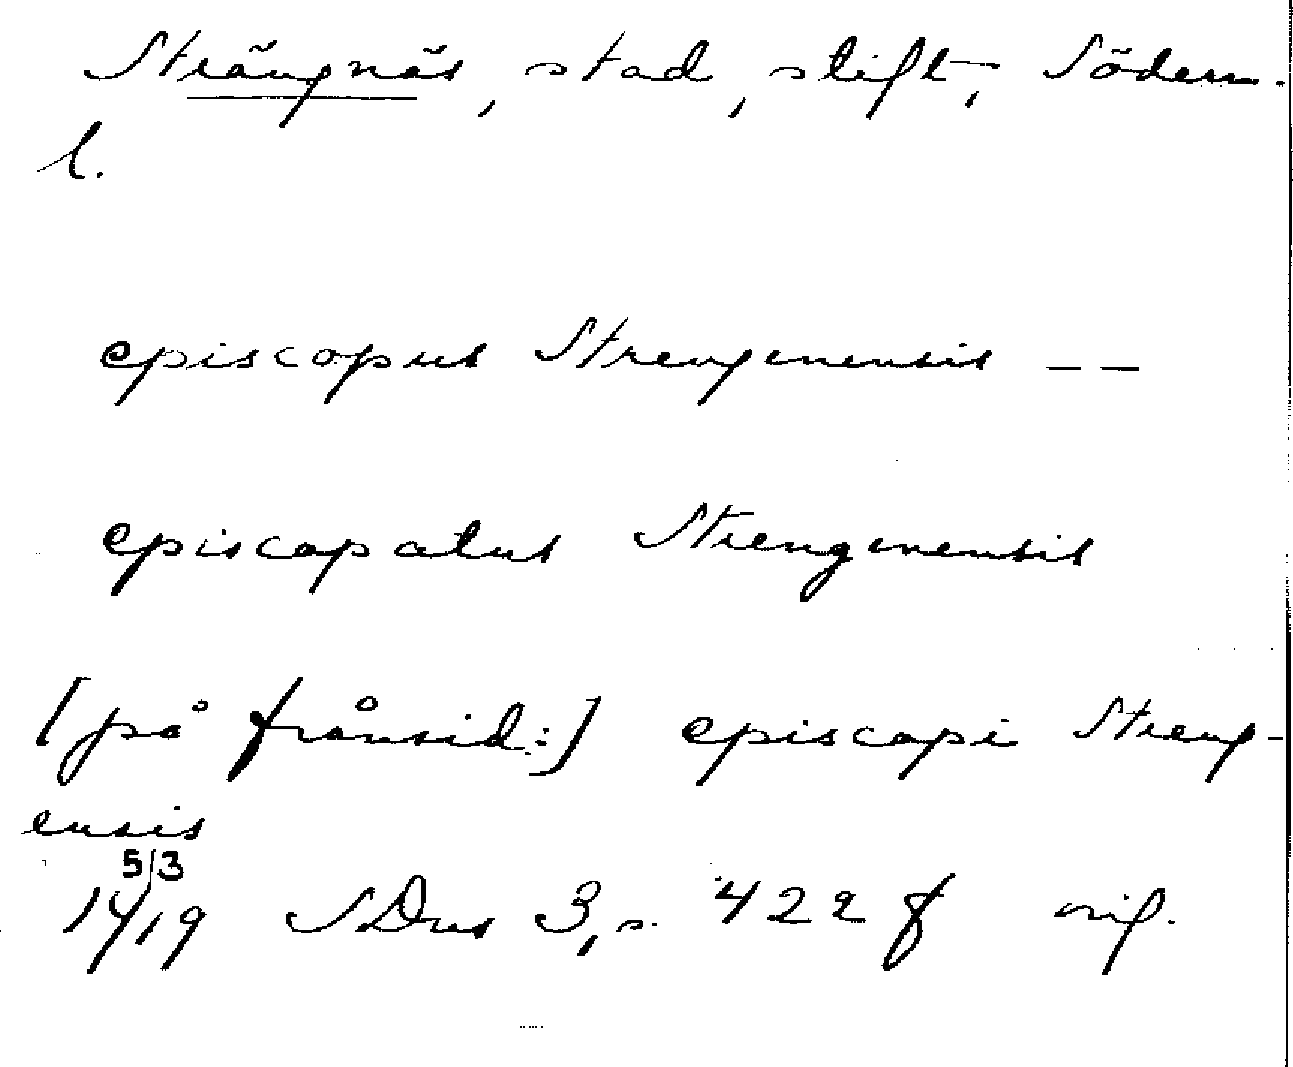 Strängnäs, stad, stift, Söderm.
l.
episcopus Strengenensis --
episcopatus Strengenensis
[på frånsid:] episcopi Streng-
ensis
5/3
1419 SDns 3, s. 422 f orig.